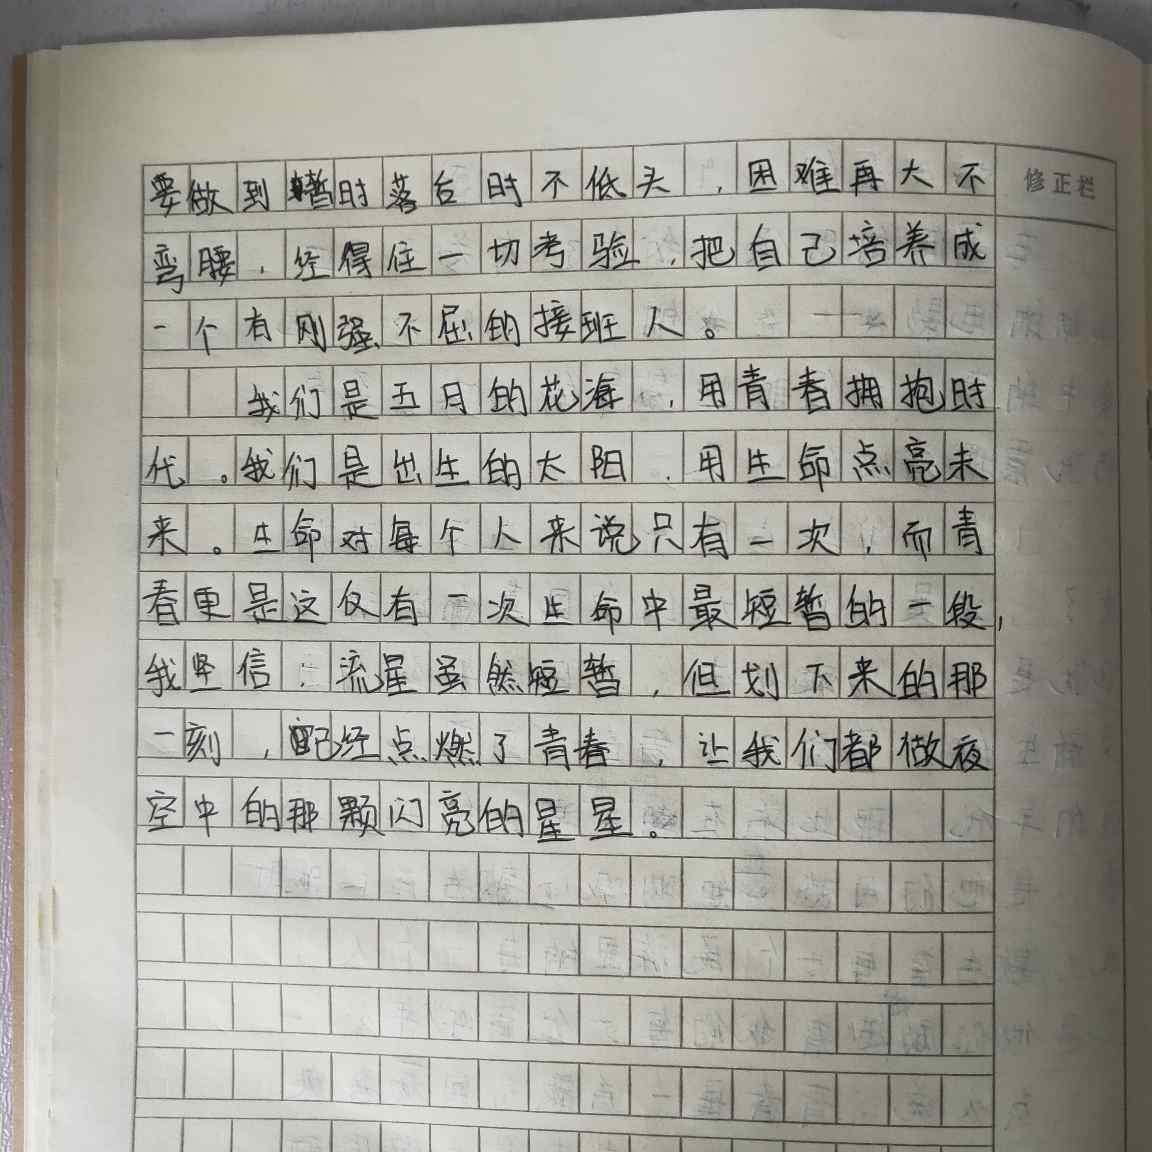 要做到暂时落后时不低头，困难再大不
修正栏
弯腰，经得住一切考验，把自己培养成
一个有刚强不屈的接班人。
我们是五月的花海，用青春拥抱时
代。我们是出生的太阳，用生命点亮未
来。生命对每个人来说只有一次，而青
春更是这仅有一次生命中最短暂的一段，
我坚信：流星虽然短暂，但划下来的那
一刻，已经点燃了青春，让我们都做夜
空中的那颗闪亮的星星。